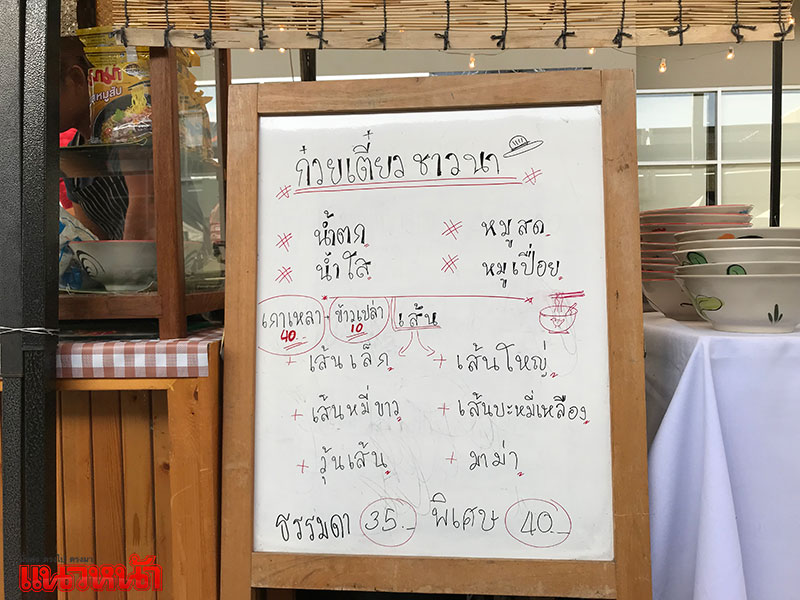 ก๋วยเตี๋ยว ชาวนา
น้ำตก หมูสด
น้ำใส หมูเปื่อย
เกาเหลา 40.- ข้าวเปล่า 10 เส้น
+ เส้นเล็ก + เส้นใหญ่
+ เส้นหมี่ขาว + เส้นบะหมี่เหลือง
+ วุ้นเส้น + มาม่า
ธรรมดา 35.- พิเศษ 40.-
หมูสับ
แนวหน้า